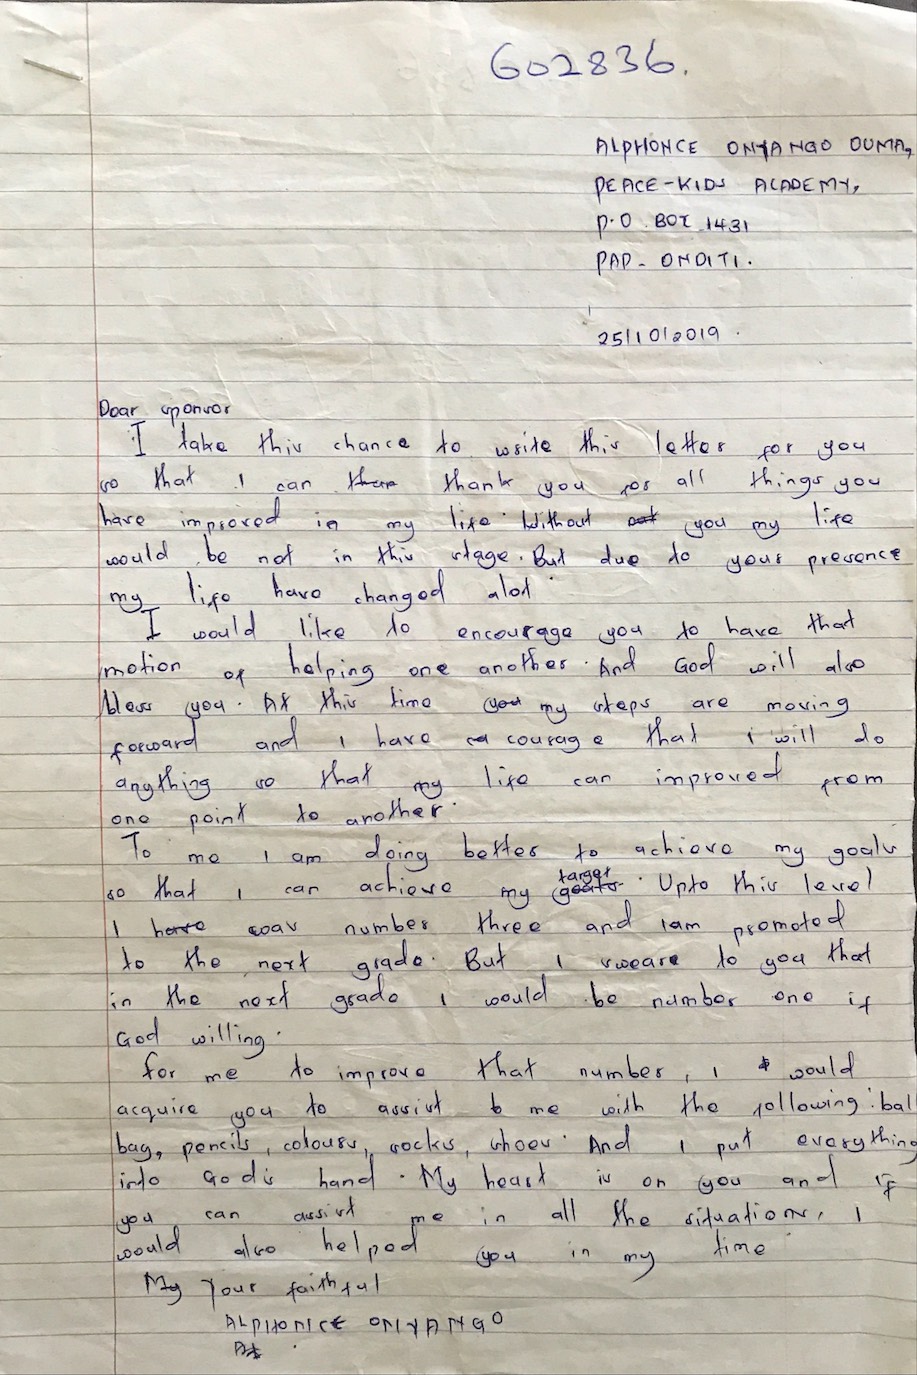 G02836.
ALPHONCE ONYANGO OUMA,
PEACE-KIDS ACADEMY,
P.O BOX 1431
PAP-ONDITI.
25/10/2019.
Dear sponsor
I take this chance to write this letter for you
so that I can thank you for all things you
have improved in my life. Without you my life
would be not in this stage. But due to your presence
my life have changed alot.
I would like to encourage you to have that
motion of helping one another. And God will also
bless you. At this time my steps are moving
forward and I have courage that I will do
anything so that my life can improved from
one point to another.
To me I am doing better to achieve my goals
so that I can achieve my target. Upto this level
I was number three and Iam promoted
to the next grade. But I sweare to you that
in the next grade I would be number one if
God willing.
for me to improve that number, I would
acquire you to assist me with the following: ball
bag, pencils, colours, socks, shoes. And I put everything
into God's hand. My heart is on you and if
you can assist me in all the situations, I
would also helped you in my time
My Your faithful
ALPHONCE ONYANGO